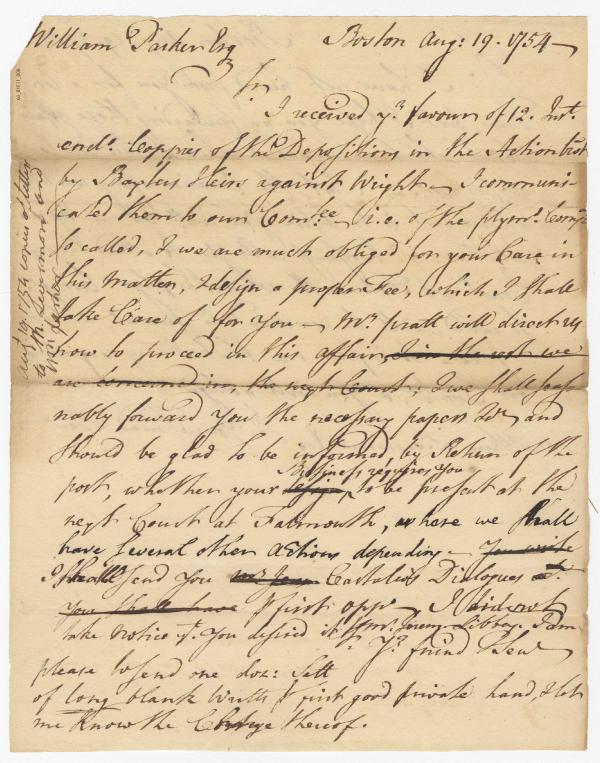 William Parker Esq
Boston Aug: 19. 1754
Sr.
I received yr. favour of 12. Inst.
encls. Coppies of the Depositions in the Action brot
by Baxters Heirs against Wright – I communi-
cated them to our Comtee – i.e. of the plymo. Compa
so called, & we are much obliged for your Care in
this Matter, & design a proper Fee, which I shall
take Care of for You – Mr. pratt will direct us
how to proceed in this affair, I in the rest we
are concerned in, the next Court; & we shall seaso
nably forward You the necessary papers &c and
should be glad to be informed, by Return of the
post, whether your
Business requires you
to be present at the
next Court at Falmouth, where we shall
have several other actions depending – You write
I shall send You Castalio's Dialogues
You shall have first oppy – I did not
take notice yt. You desired it
Yr. friend & Sert
please to send one doz: sett
of long blank Writts first good private hand, & let
me Know the Charge thereof.
Aug 19. 1754 copies of letters
to Mr. Levermore and
Wm. Parker